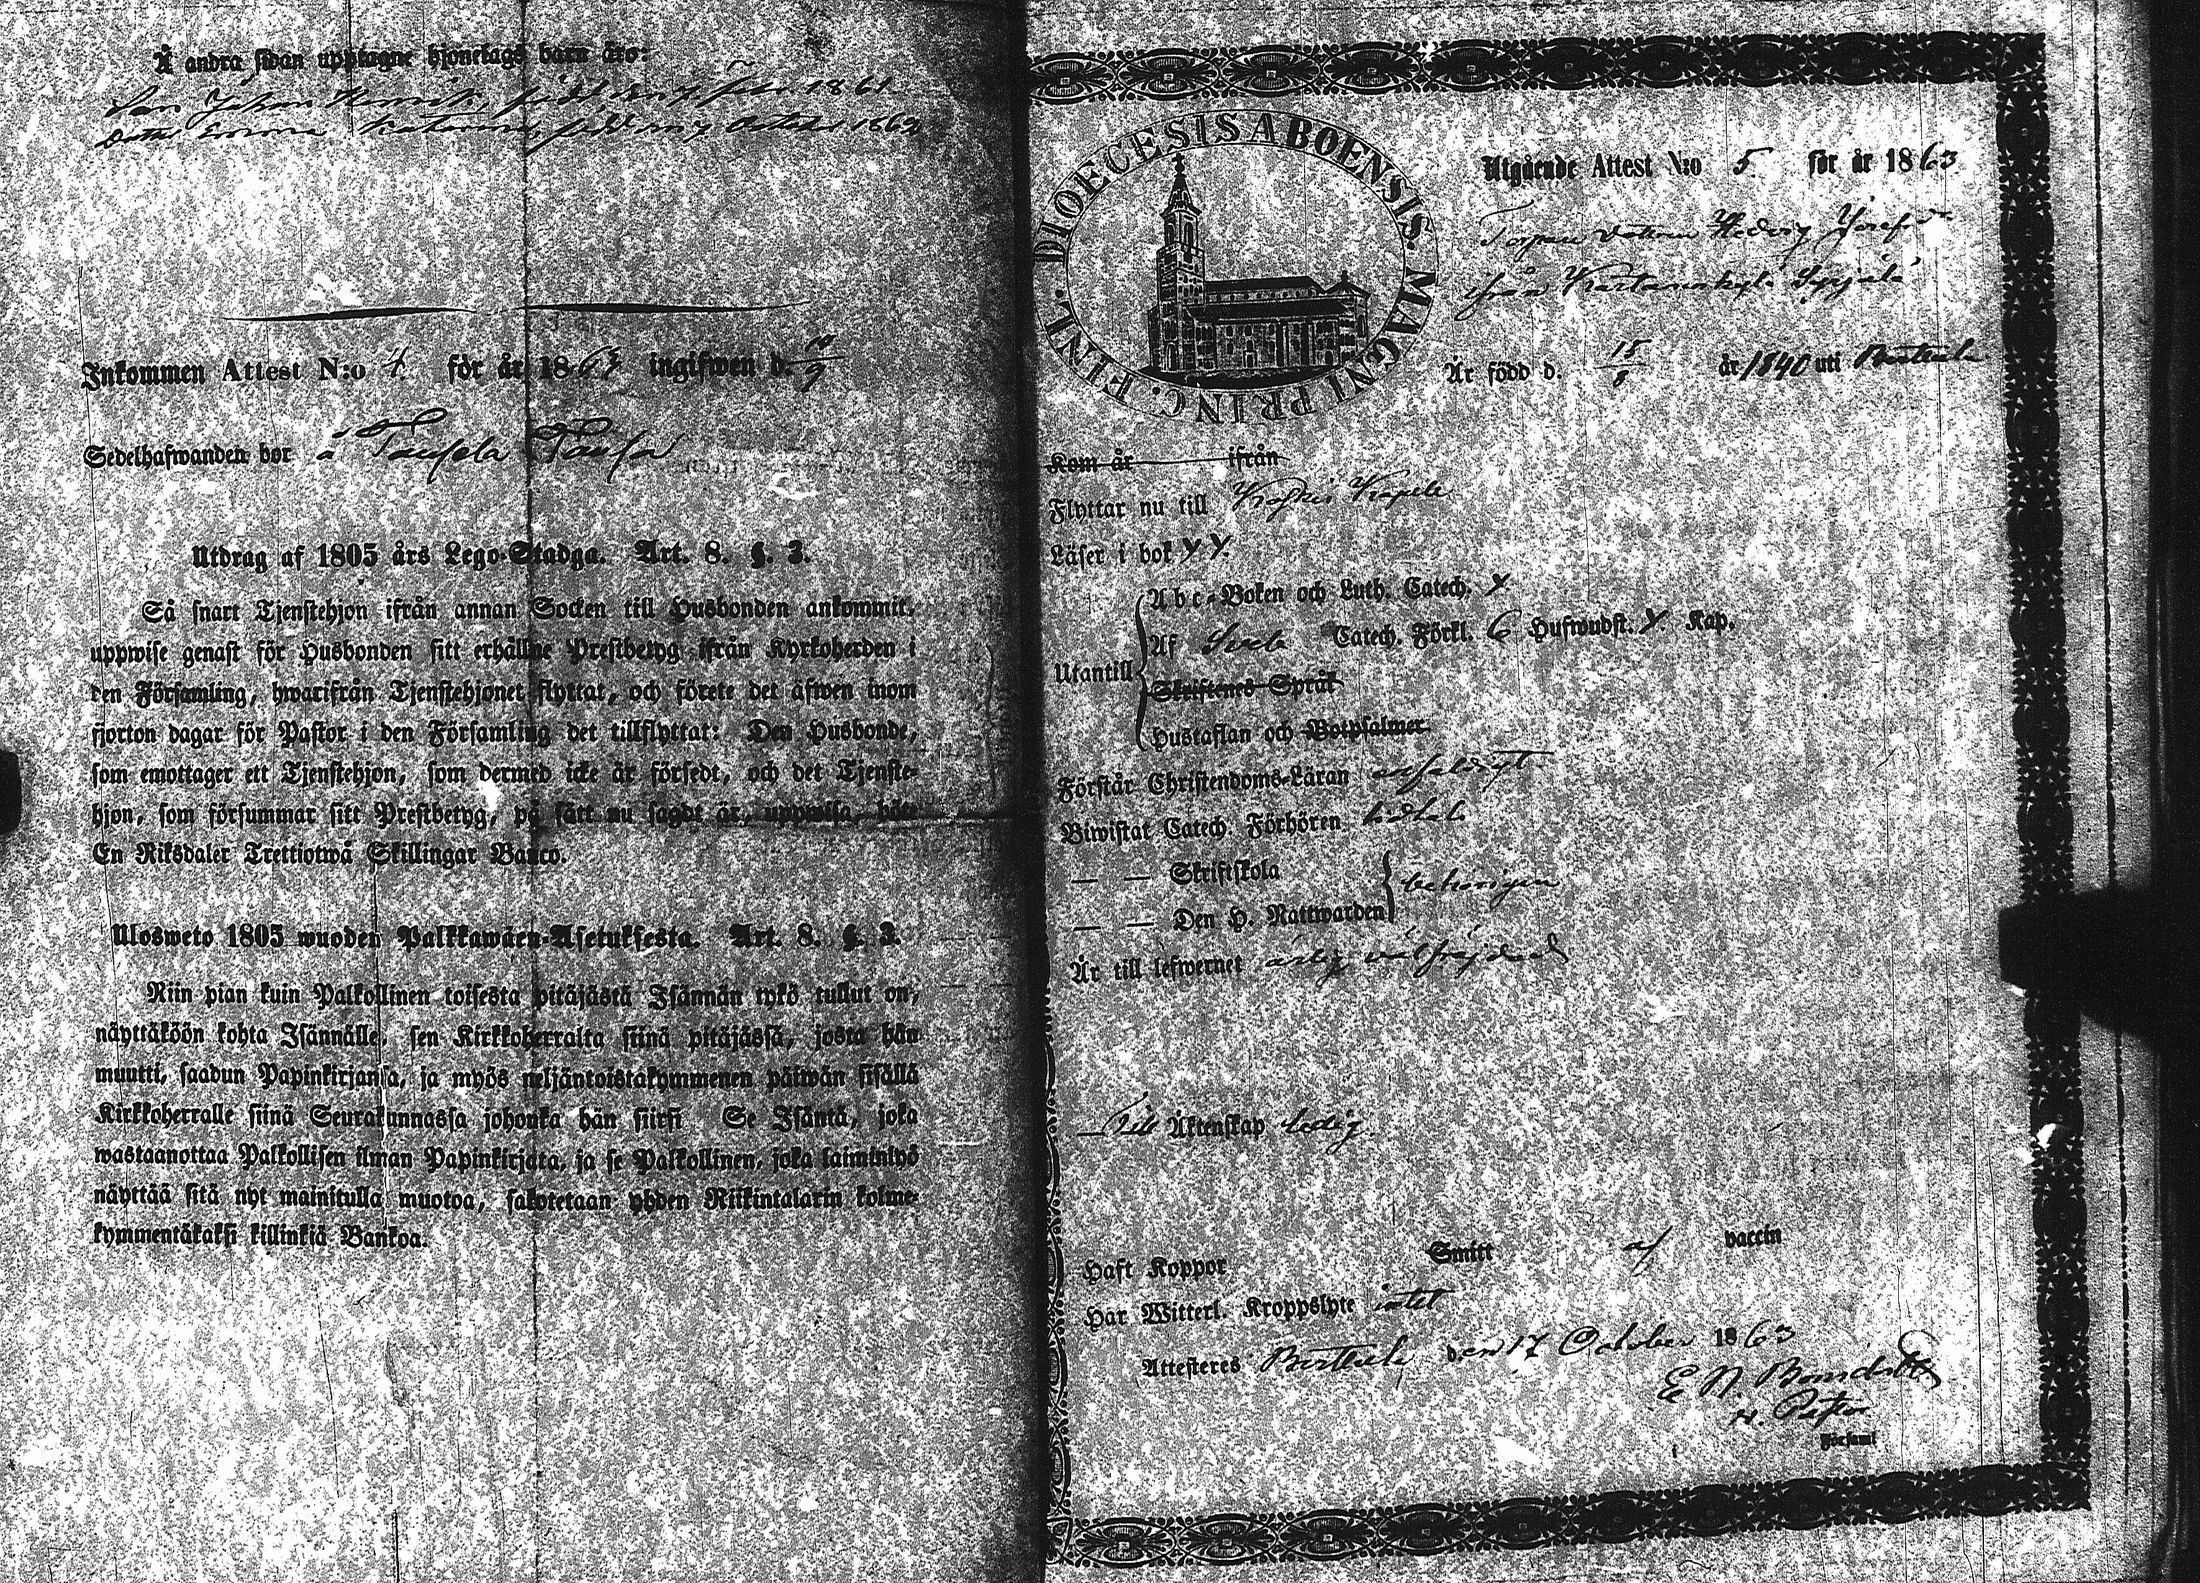 Å andra sidan upptagne hjonelags barn äro:
Son Johan Henrik, född den 7 Febr. 1861
Dotter Emma Katarina, född den 7 October 1862
Inkommen Attest N:o 4. för år 1863 ingifwen d. 10/9
Sedelhafwanden bor å
Utdrag af 1805 års Lego-Stadga. Art. 8. §. 3.
Så snart Tjenstehjon ifrån annan Socken till Husbonden ankommit,
uppwise genast för Husbonden sitt erhållne Prestbetyg ifrån Kyrkoherden i
den Församling, hwarifrån Tjenstehjonet flyttat, och förete det äfwen inom
fjorton dagar för Pastor i den Församling det tillflyttat: Den Husbonde,
som emottager ett Tjenstehjon, som dermed icke är försedt, och det Tjenste-
hjon, som försummar sitt Prestbetyg, på sätt nu sagdt är, uppwisa, böte
En Riksdaler Trettiotwå Skillingar Banco.
Ulosweto 1805 wuoden Palkkawäen-Asetuksesta. Art. 8. §. 3.
Niin pian kuin Palkollinen toisesta pitäjästä Isännän tykö tullut on,
näyttäköön kohta Isännälle, sen Kirkkoherralta siinä pitäjässä, josta hän
muutti, saadun Papinkirjansa, ja myös neljäntoistakymmenen päiwän sisällä
Kirkkoherralle siinä Seurakunnassa johonka hän siirsi Se Isäntä, joka
wastaanottaa Palkollisen ilman Papinkirjata, ja se Palkollinen, joka laiminlyö
näyttää sitä nyt mainitulla muotoa, sakotetaan yhden Riikintalarin kolme-
kymmentäkaksi killinkiä Bankoa.
DIOECESIS ABOENSIS. MAGNI PRINC. FINL.
Utgående Attest N:o 5. för år 1863
Torpare dottren Hedvig Josefsdr
ifrån Kartanonkylä Seppälä
Är född d. 15/8 år 1840 uti Berttula
Kom år ifrån
Flyttar nu till Koskis Kapell
Läser i bok
Utantill
Abc-Boken och Luth. Catech.
Af Sveb. Catech. Förkl. 6 Hufwudst. Kap.
Skriftenes Språk
Hustaflan och Botpsalmer
Förstår Christendoms-Läran enfaldigt
Biwistat Catech. Förhören
— — Skriftskola
— — Den H. Nattwarden behörigen
Är till lefwernet ärlig välfrejdad
Till Äktenskap ledig
Haft Koppor Smitt af vaccin
Har Witterl. Kroppslyte intet
Attesteres Berttula den 17 October 1863
E N
Församl